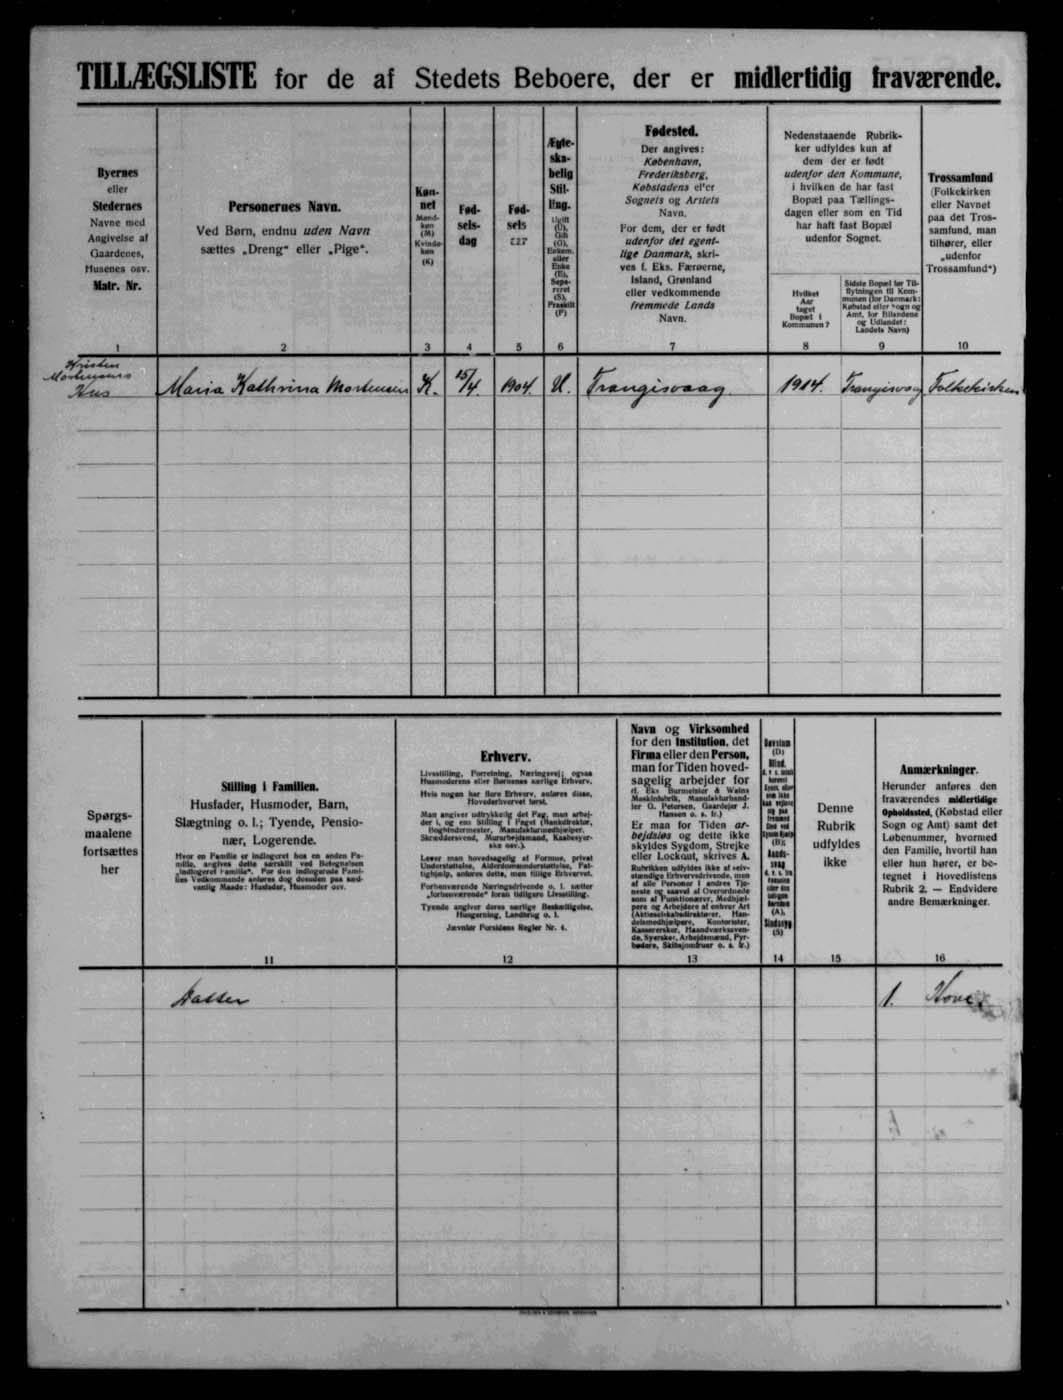 TILLÆGSLISTE for de af Stedets Beboere, der er midlertidig fraværende.
Byernes
eller
Stedernes
Navne med
Angivelse af
Gaardenes,
Husenes osv.
Matr. Nr.
1
Personernes Navn.
Ved Børn, endnu uden Navn
sættes „Dreng“ eller „Pige“.
2
Køn-
net
Mand-
køn
(M)
Kvinde-
køn
(K)
3
Fød-
sels-
dag
4
Fød-
sels
5
Ægte-
ska-
belig
Stil-
ling.
Ugift
(U),
Gift
(G),
Enkem.
eller
Enke
(E),
Sepa-
reret
(S),
Fraskilt
(F)
6
Fødested.
Der angives:
København,
Frederiksberg,
Købstadens eller
Sognets og Amtets
Navn.
For dem, der er født
udenfor det egent-
lige Danmark, skri-
ves f. Eks. Færøerne,
Island, Grønland
eller vedkommende
fremmede Lands
Navn.
7
Nedenstaaende Rubrik-
ker udfyldes kun af
dem der er født
udenfor den Kommune,
i hvilken de har fast
Bopæl paa Tællings-
dagen eller som en Tid
har haft fast Bopæl
udenfor Sognet.
Hvilket
Aar
taget
Bopæl i
Kommunen?
8
Sidste Bopæl før Til-
flytningen til Kom-
munen (for Danmark:
Købstad eller Sogn og
Amt, for Bilandene
og Udlandet:
Landets Navn)
9
Trossamfund
(Folkekirken
eller Navnet
paa det Tros-
samfund, man
tilhører, eller
„udenfor
Trossamfund“)
10
Kristen
Mortensens
Hus
Maria Kathrina Mortensen K. 15/4. 1904. U. Trangisvaag. 1914. Trangisvaag Folkekirken
Spørgs-
maalene
fortsættes
her
Stilling i Familien.
Husfader, Husmoder, Barn,
Slægtning o. l.; Tyende, Pensio-
nær, Logerende.
Hvor en Familie er indlogeret hos en anden Fa-
milie, angives dette særskilt ved Betegnelsen
„indlogeret Familie“. For den indlogerede Fami-
lies Vedkommende anføres dog desuden paa sæd-
vanlig Maade: Husfader, Husmoder osv.
11
Erhverv.
Livsstilling, Forretning, Næringsvej; ogsaa
Husmoderens eller Børnenes særlige Erhverv.
Hvis nogen har flere Erhverv, anføres disse,
Hovederhvervet først.
Man angiver udtrykkelig det Fag, man arbej-
der i, og ens Stilling i Faget (Bankdirektør,
Bogbindermester, Manufakturmedhjælper,
Skræddersvend, Murarbejdsmand, Kaabesyer-
ske osv.).
Lever man hovedsagelig af Formue, privat
Understøttelse, Alderdomsunderstøttelse, Fat-
tighjælp, anføres dette, men tillige Erhvervet.
Forhenværende Næringsdrivende o. l. sætter
„forhenværende“ foran tidligere Livsstilling.
Tyende angiver deres særlige Beskæftigelse,
Husgerning, Landbrug o. l.
Jævnfør Forsidens Regler Nr. 4.
12
Navn og Virksomhed
for den Institution, det
Firma eller den Person,
man for Tiden hoved-
sagelig arbejder for
(f. Eks Burmeister & Wains
Maskinfabrik, Manufakturhand-
ler O. Petersen, Gaardejer J.
Hansen o. s. fr.)
Er man for Tiden ar-
bejdsløs og dette ikke
skyldes Sygdom, Strejke
eller Lockout, skrives A.
Rubrikken udfyldes ikke af selv-
stændige Erhvervsdrivende, men
af alle Personer i andres Tje-
neste og saavel af Overordnede
som af Funktionærer, Medhjæl-
pere og Arbejdere af enhver Art
(Aktieselskabsdirektører, Han-
delsmedhjælpere, Kontorister,
Kassererske, Haandværkssven-
de, Syersker, Arbejdsmænd, Fyr-
bødere, Skibsjomfruer o. s. fr.)
13
Døvstum
(D)
Blind,
(B);
Aands-
svag
(A),
Sindssyg
(S)
14
Denne
Rubrik
udfyldes
ikke
15
Anmærkninger.
Herunder anføres den
fraværendes midlertidige
Opholdssted, (Købstad eller
Sogn og Amt) samt det
Løbenummer, hvormed
den Familie, hvortil han
eller hun hører, er be-
tegnet i Hovedlistens
Rubrik 2. — Endvidere
andre Bemærkninger.
16
Datter 1. Hove.